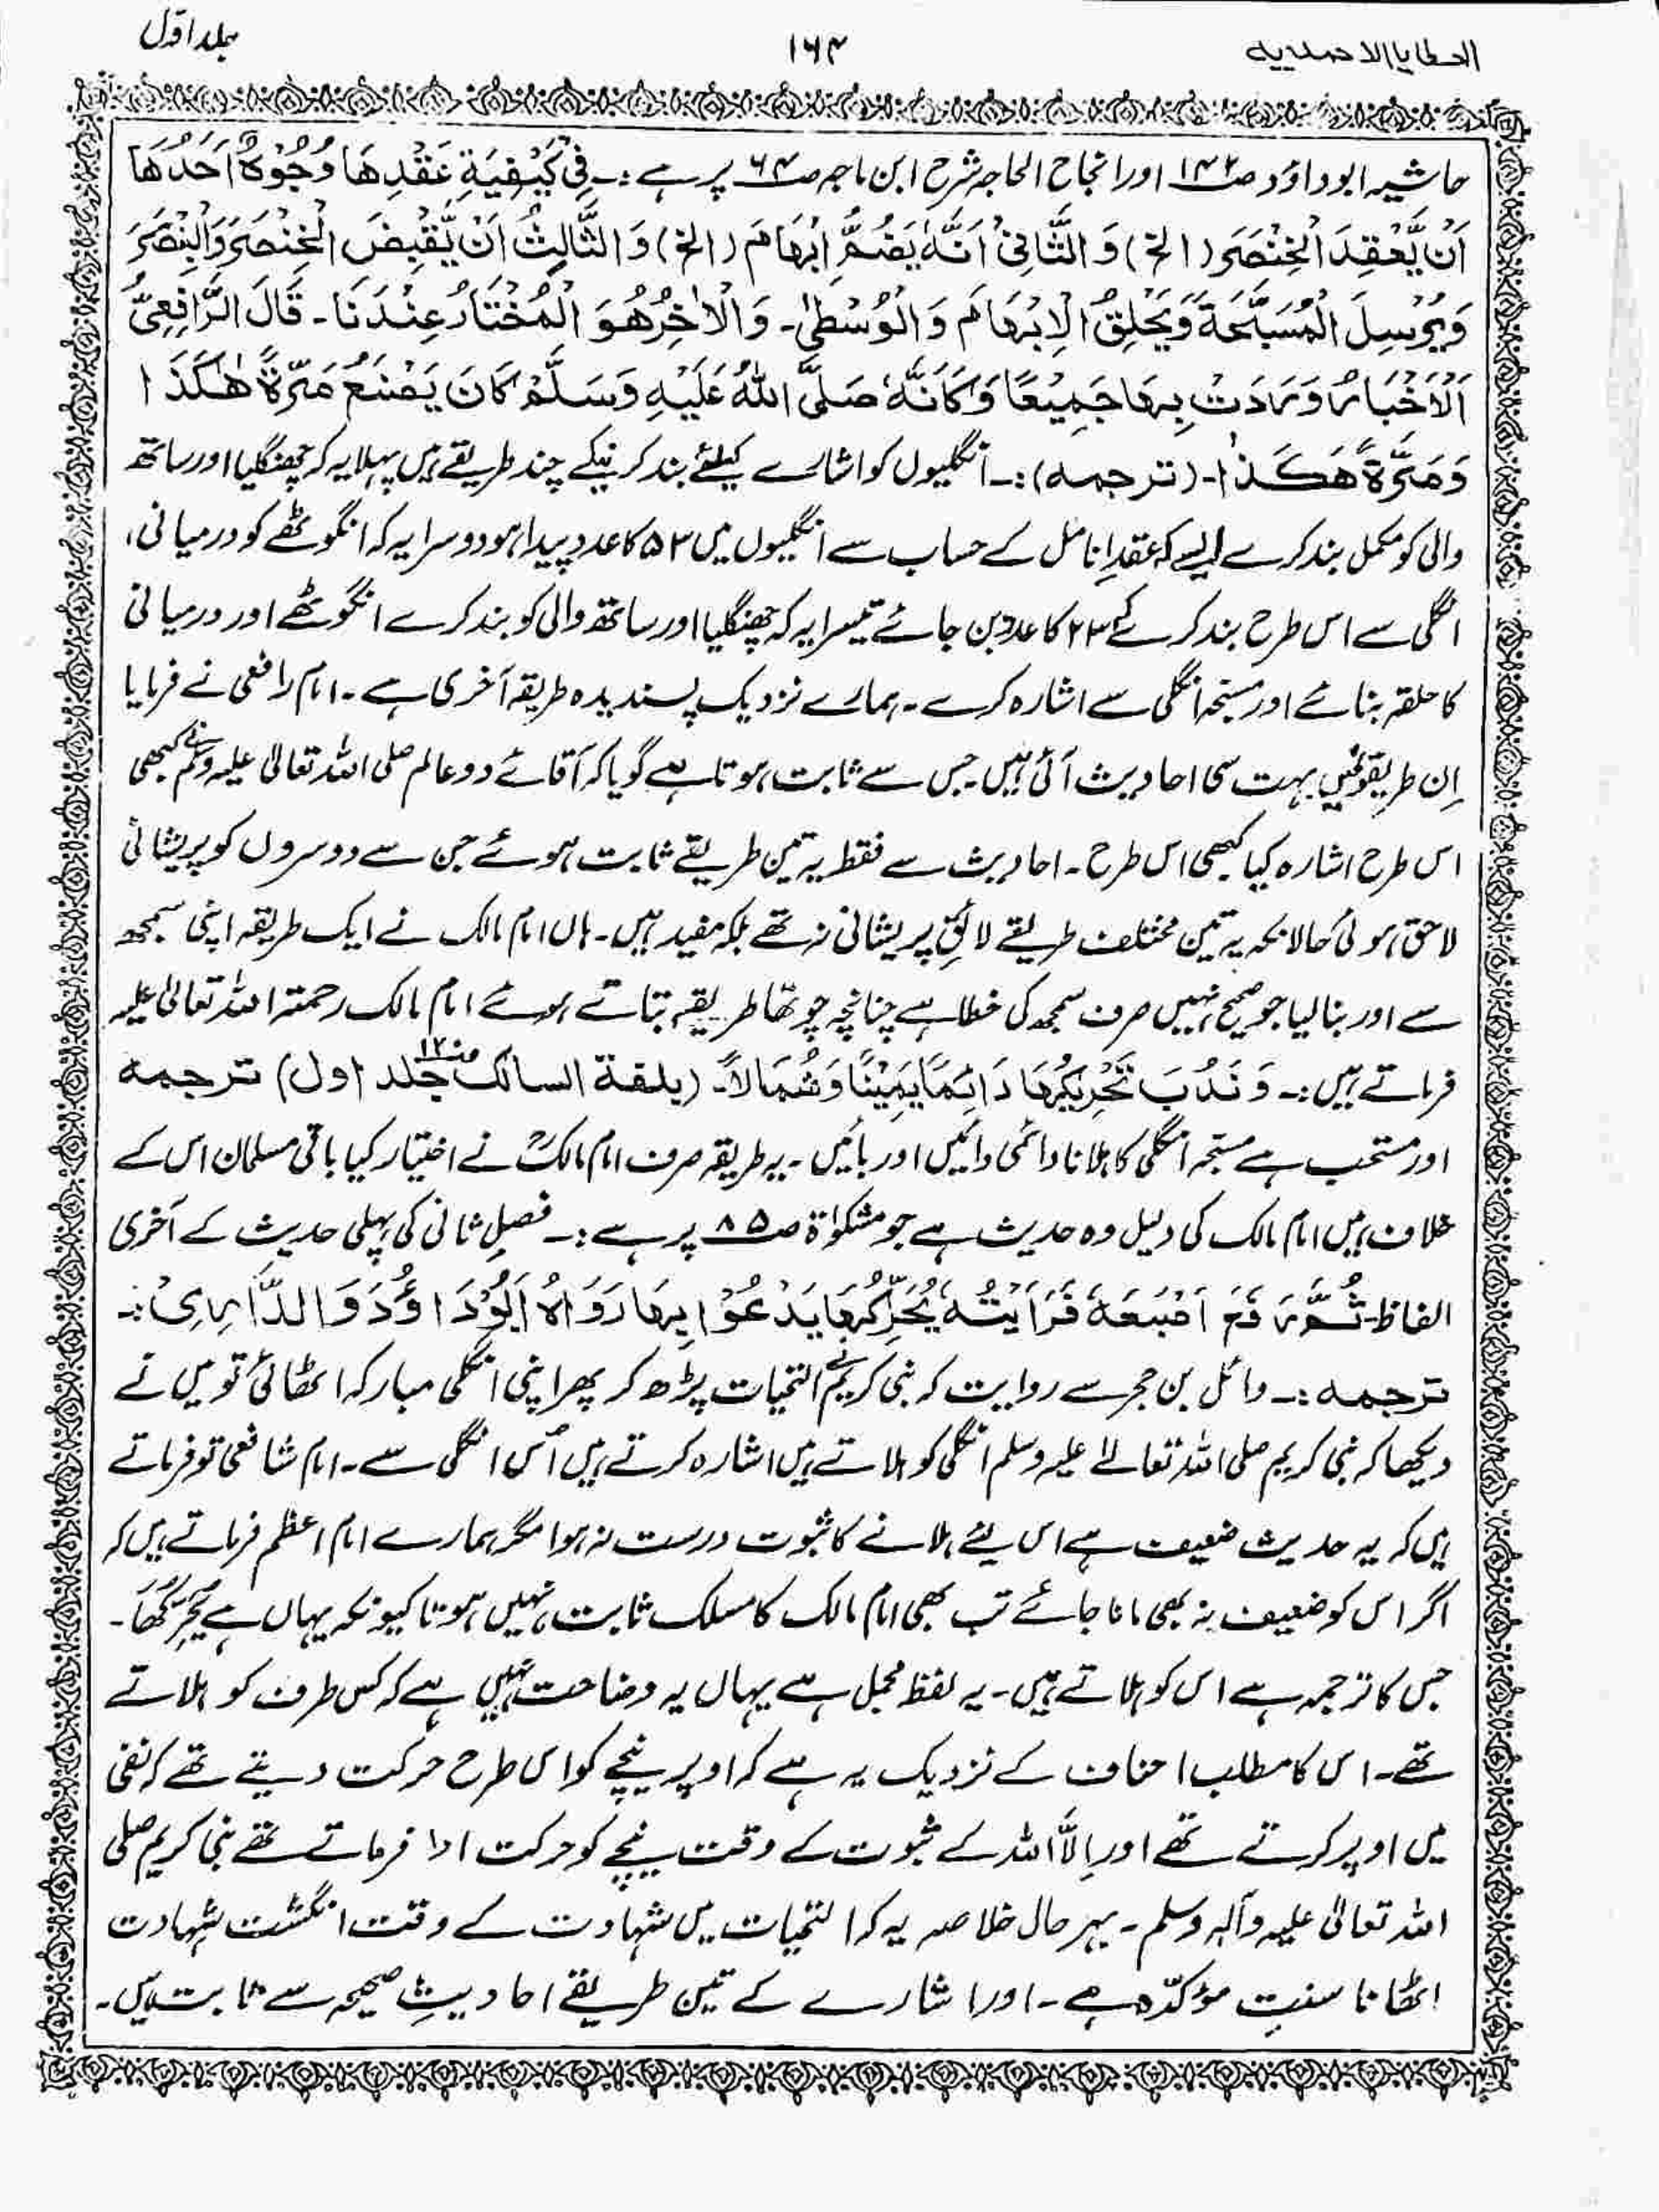 العطایا الاحمدیہ ۱۶۴ جلد اوّل
حاشیہ ابوداؤد صـ۱۴۲ اور انجاح الحاجہ شرح ابن ماجہ صـ۶۴ پر ہے :۔ فِیْ کَیْفِیَةِ عَقْدِهَا وُجُوْهٌ اَحَدُهَا
اَنْ یَّعْقِدَ الْخِنْصَرَ (الخ) وَ الثَّانِیْ اَنَّهٗ یَضُمُّ اِبْهَامَ (الخ) وَ الثَّالِثُ اَنْ یَّقْبِضَ الْخِنْصَرَ وَالْبِنْصَرَ
وَیُرْسِلَ الْمُسَبِّحَةَ وَیَحْلِقُ الْاِبْهَامَ وَ الْوُسْطٰی۔ وَ الْاٰخِرُ هُوَ الْمُخْتَارُ عِنْدَنَا۔ قَالَ الرَّافِعِیُّ
اَلْاَخْبَارُ وَرَدَتْ بِهَا جَمِیْعًا وَ کَانَّهٗ صَلَّی اللهُ عَلَیْهِ وَسَلَّمْ کَانَ یَصْنَعُ مَرَّةً هٰکَذَا
وَمَرَّةً هَکَذَا۔ (ترجمہ) :۔ انگلیوں کو اشارے کیلئے بند کرنیکے چند طریقے ہیں پہلا یہ کہ چھنگلیا اور ساتھ
والی کو مکمل بند کرے ایسے کہ عقدِ انامل کے حساب سے انگلیوں میں ۵۳ کا عدد پیدا ہو دوسرا یہ کہ انگوٹھے کو درمیانی،
انگلی سے اس طرح بند کرے کہ ۲۳ کا عدد بن جائے تیسرا یہ کہ چھنگلیا اور ساتھ والی کو بند کرے انگوٹھے اور درمیانی
کا حلقہ بنائے اور مسبّحہ انگلی سے اشارہ کرے۔ ہمارے نزدیک پسندیدہ طریقہ آخری ہے۔ امام رافعی نے فرمایا
اِن طریقوں میں بہت سی احادیث آئی ہیں جس سے ثابت ہوتا ہے گویا کہ آقائے دو عالم صلی اللہ تعالیٰ علیہ وسلم نے کبھی
اس طرح اشارہ کیا کبھی اس طرح۔ احادیث سے فقط یہ تین طریقے ثابت ہوئے جن سے دوسروں کو پریشانی
لاحق ہوئی حالانکہ یہ تین مختلف طریقے لائقِ پریشانی نہ تھے بلکہ مفید ہیں۔ ہاں امام مالک نے ایک طریقہ اپنی سمجھ
سے اور بنالیا جو صحیح نہیں صرف سمجھ کی خطا ہے چنانچہ چوتھا طریقہ بتاتے ہوئے امام مالک رحمتہ اللہ تعالیٰ علیہ
فرماتے ہیں :۔ وَ نَدُبَ تَحْرِیْکُهَا دَائِمًا یَمِیْنًا وَشُمَالاً۔ (بلغة السالک صـ۱۲۰ جلد اول) ترجمہ
اور مستحب ہے مسبّحہ انگلی کا ہلانا دائمی دائیں اور بائیں۔ یہ طریقہ صرف امام مالکؒ نے اختیار کیا باقی مسلمان اس کے
خلاف ہیں امام مالک کی دلیل وہ حدیث ہے جو مشکوٰۃ صـ۸۵ پر ہے :۔ فصلِ ثانی کی پہلی حدیث کے آخری
الفاظ۔ ثُمَّ رَفَعَ اَصْبَعَهٗ فَرَاَیْتُهٗ یُحَرِّکُهَا یَدْعُوْا بِهَا رَوَاهُ اَبُوْدَاوُدَ وَ الدَّارِمِیْ :۔
ترجمہ :۔ وائل بن حجر سے روایت کہ نبی کریمؐ نے التحیات پڑھ کر پھر اپنی انگلی مبارکہ اٹھائی تو میں نے
دیکھا کہ نبی کریم صلی اللہ تعالےٰ علیہ وسلم انگلی کو ہلاتے ہیں اشارہ کرتے ہیں اُس انگلی سے۔ امام شافعی تو فرماتے
ہیں کہ یہ حدیث ضعیف ہے اس لئے ہلانے کا ثبوت درست نہ ہوا مگر ہمارے امام اعظم فرماتے ہیں کہ
اگر اس کو ضعیف نہ بھی مانا جائے تب بھی امام مالک کا مسلک ثابت نہیں ہوتا کیونکہ یہاں ہے یُحَرِّکُهَا۔
جس کا ترجمہ ہے اس کو ہلاتے ہیں۔ یہ لفظ مجمل ہے یہاں یہ وضاحت نہیں ہے کہ کس طرف کو ہلاتے
تھے۔ اس کا مطلب احناف کے نزدیک یہ ہے کہ اوپر نیچے کو اس طرح حرکت دیتے تھے کہ نفی
میں اوپر کرتے تھے اور اِلَّا اللہ کے ثبوت کے وقت نیچے کو حرکت ادا فرماتے تھے نبی کریم صلی
اللہ تعالیٰ علیہ وآلہٖ وسلم۔ بہر حال خلاصہ یہ کہ التحیات میں شہادت کے وقت انگشت شہادت
اٹھانا سنتِ مؤکدّہ ہے۔ اور اشارے کے تین طریقے احادیثِ صحیحہ سے ثابت ہیں۔